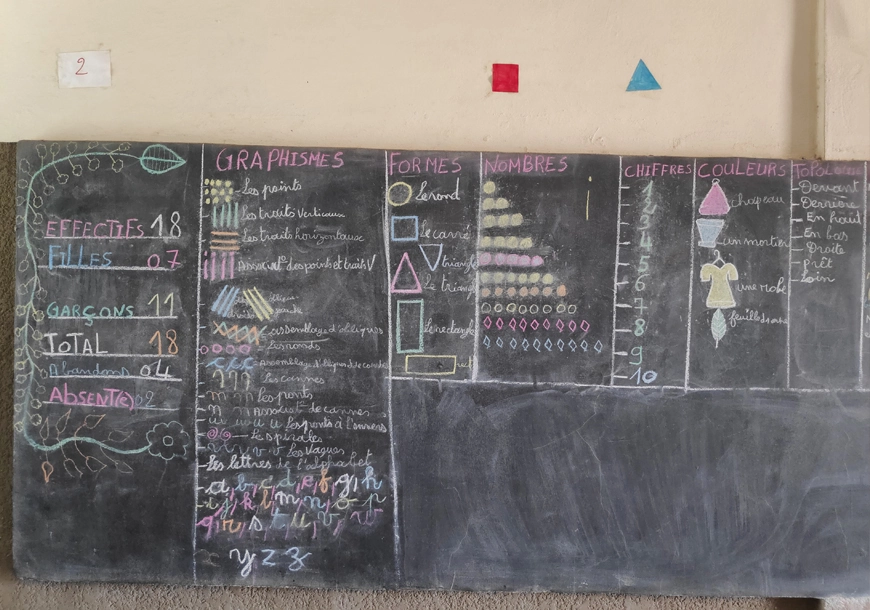 2
EFFECTIFS 18
FILLES 07
GARÇONS 11
TOTAL 18
Abandons 04
ABSENT(e) 02
GRAPHISMES
Les points
les traits verticaux
Les traits horizontaux
Associat° des points et traits V
oblique
gauche
droite
assemblage d'obliques
Les ronds
Assemblage d'obliques de
Les cannes
Les ponts
Associat° de cannes
Les ponts à l'envers
Les spirales
Les vagues
Les lettres de l'alphabet
a, b, c, d, e, f, g, h
i, j, k, l, m, n, o, p
q, r, s, t, u, v, w
y z
FORMES
Le rond
Le carré
triangle
Le triang
Le rectangle
NOMBRES
i
CHIFFRES
1
2
3
4
5
6
7
8
9
10
COULEURS
chapeau
un mortier
une robe
Devant
Derrière
En haut
En bas
Droite
Prêt
Loin